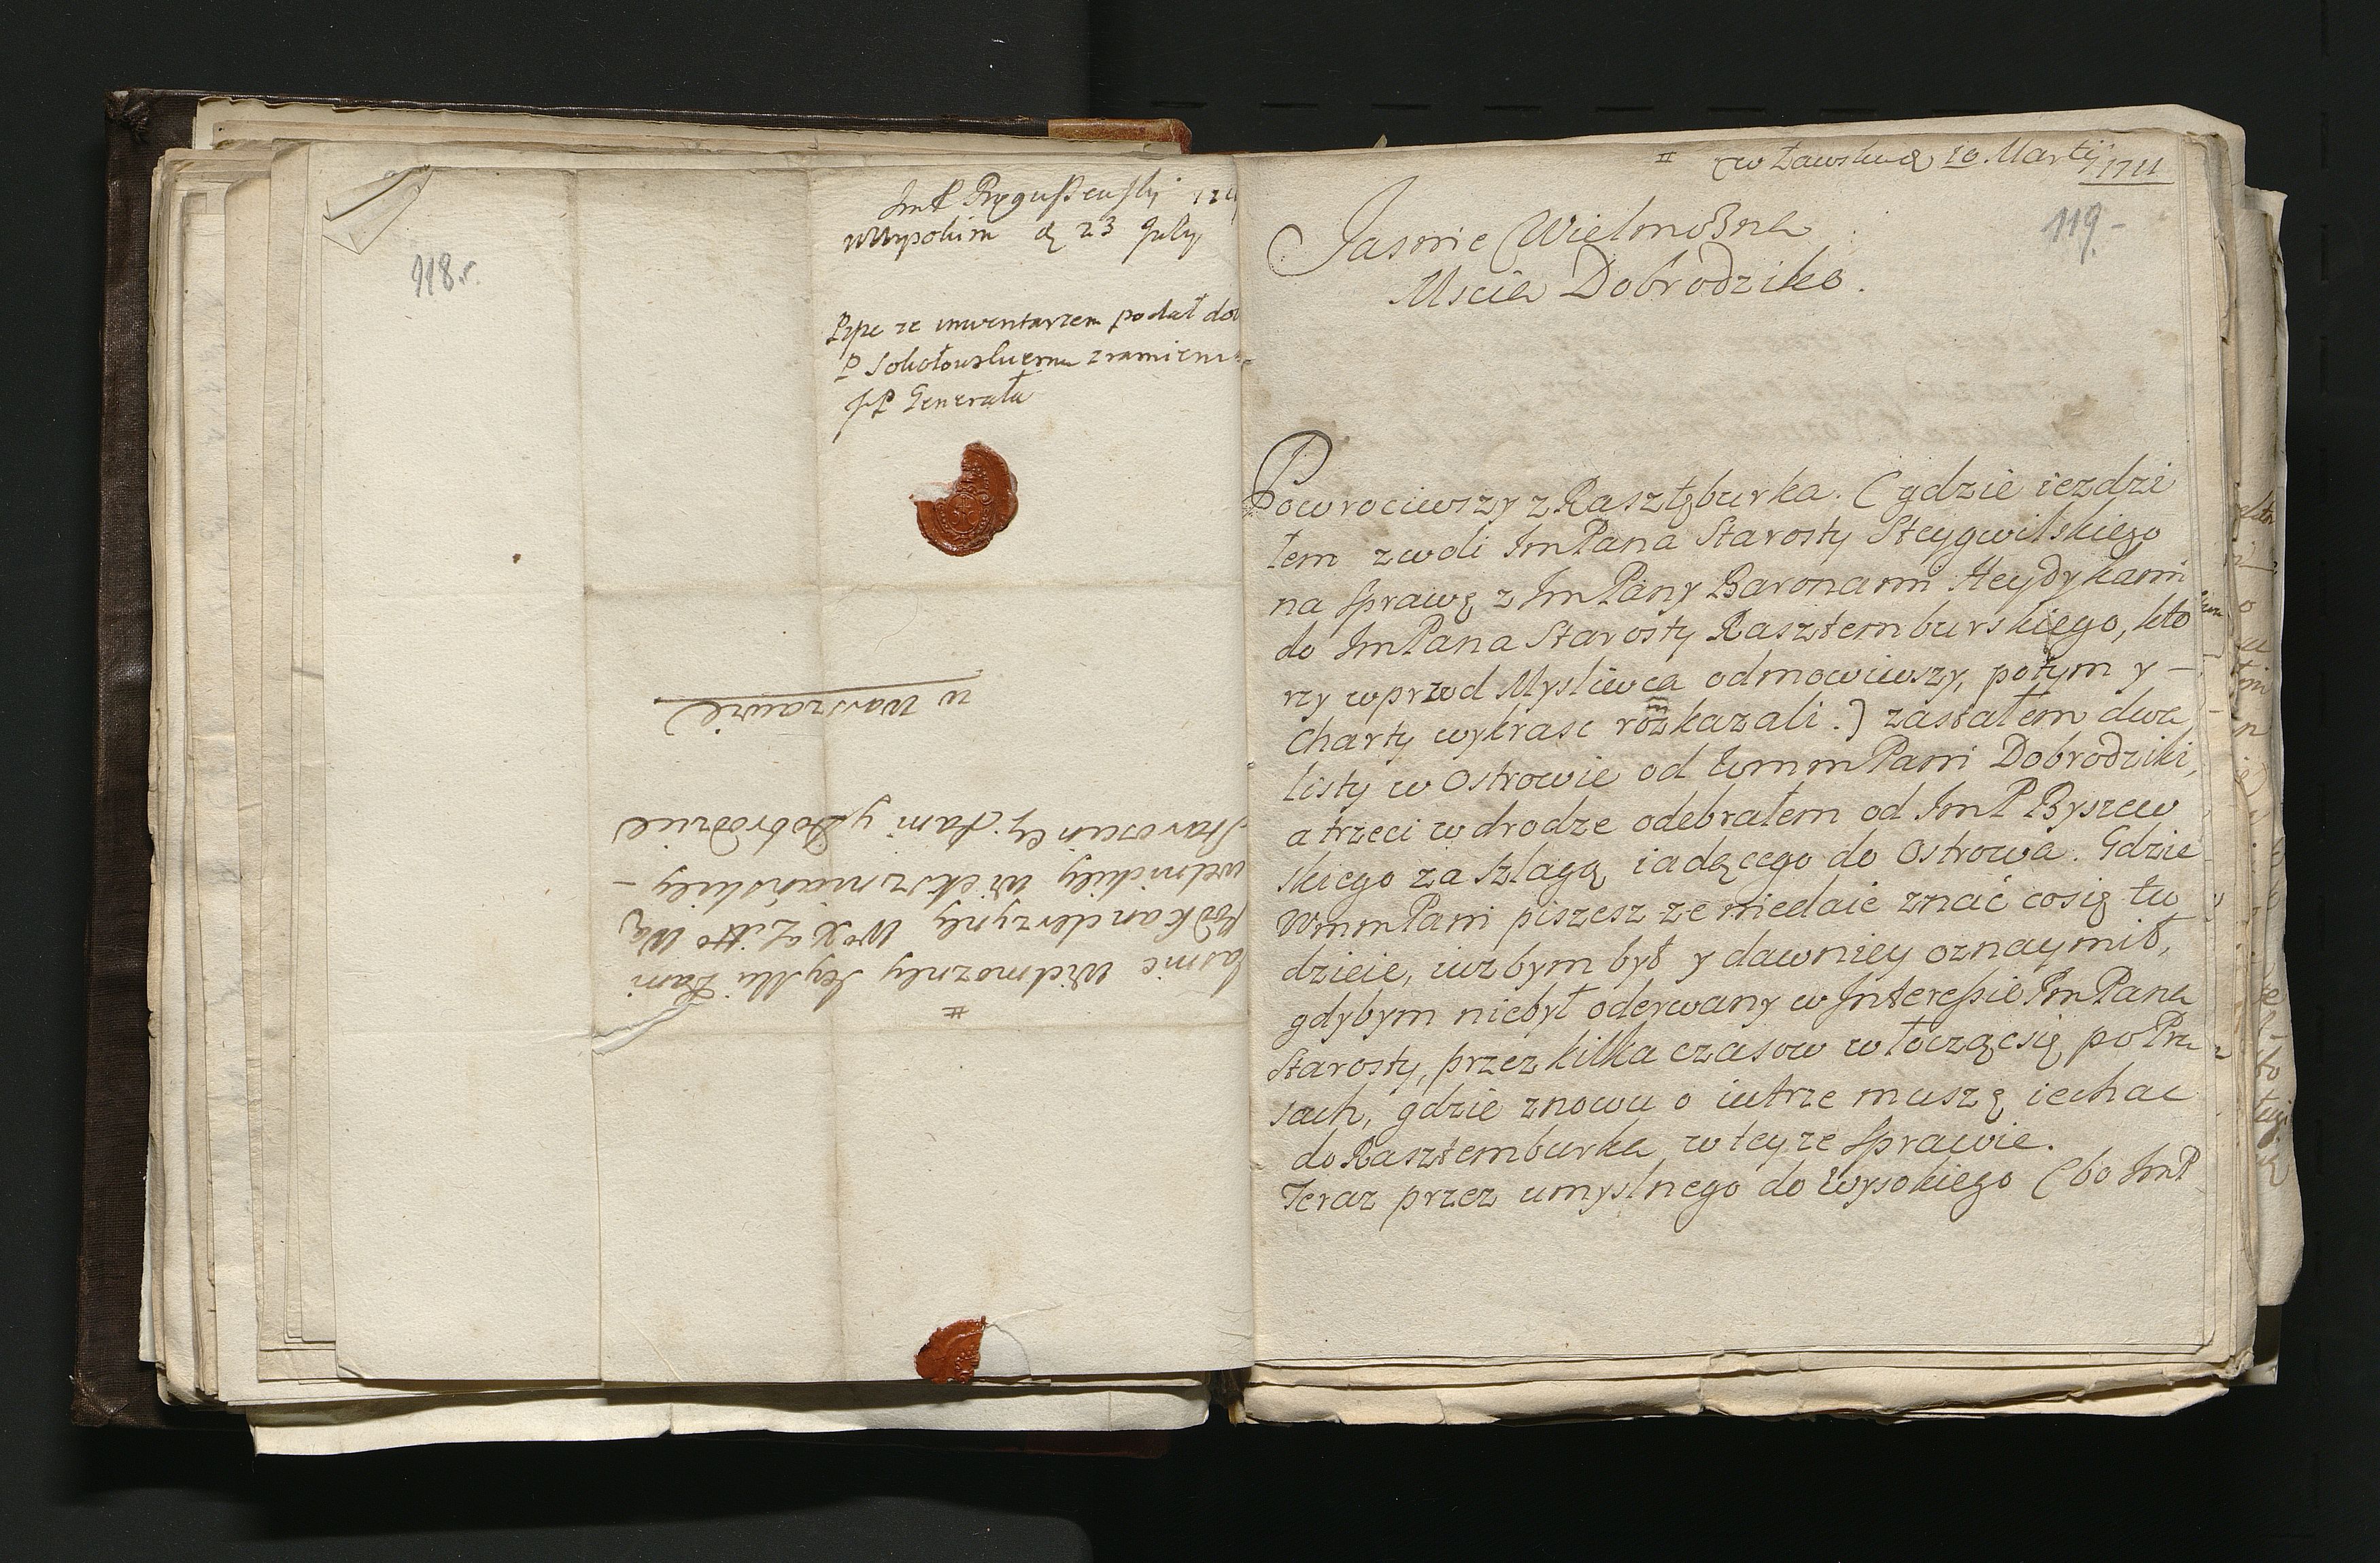 118.r.
ImP 
wWysokim d 23 July
Pisze ze inwentarzem podał
P Sokołowskiemu z ramienia
JP Generała
#
Jasnie Wielmozney Jeymci Pani
Podkanclerzyney WX Litto
welnickiey Wieksznianskiey –
Starosciney Pani y Dobrodzice
w Warszawie
# w Ławsku d 10. Martij 1711
119.
Jasnie Wielmozna
Mscia Dobrodziko.
Powrociwszy z Rasztęburka. (gdzie iezdzi
łem zwoli ImPana Starosty Steygwilskiego
na sprawę z ImPany Baronami Heydykami
do ImPana Starosty Rasztemburskiego, kto
rzy wprzod Mysliwca odmowiwszy, potym y –
charty wykrasc rozkazali.) zastałem dwa
listy w Ostrowie od WmmPani Dobrodziki,
a trzeci w drodze odebrałem od ImP Ryszew
skiego za szlagą iadącego do Ostrowa. Gdzie
WmmPani piszesz ze niedaie znać cosię tu
dzieie, iuz bym był y dawniey oznaymił,
gdybym niebył oderwany w Interessie ImPana
Starosty, przez kilka czasow włocząc się po Pru
sach, gdzie znowu o iutrze muszę iechac
do Rasztemburka w teyze sprawie.
Teraz przez umyslnego do Wysokiego (bo ImP